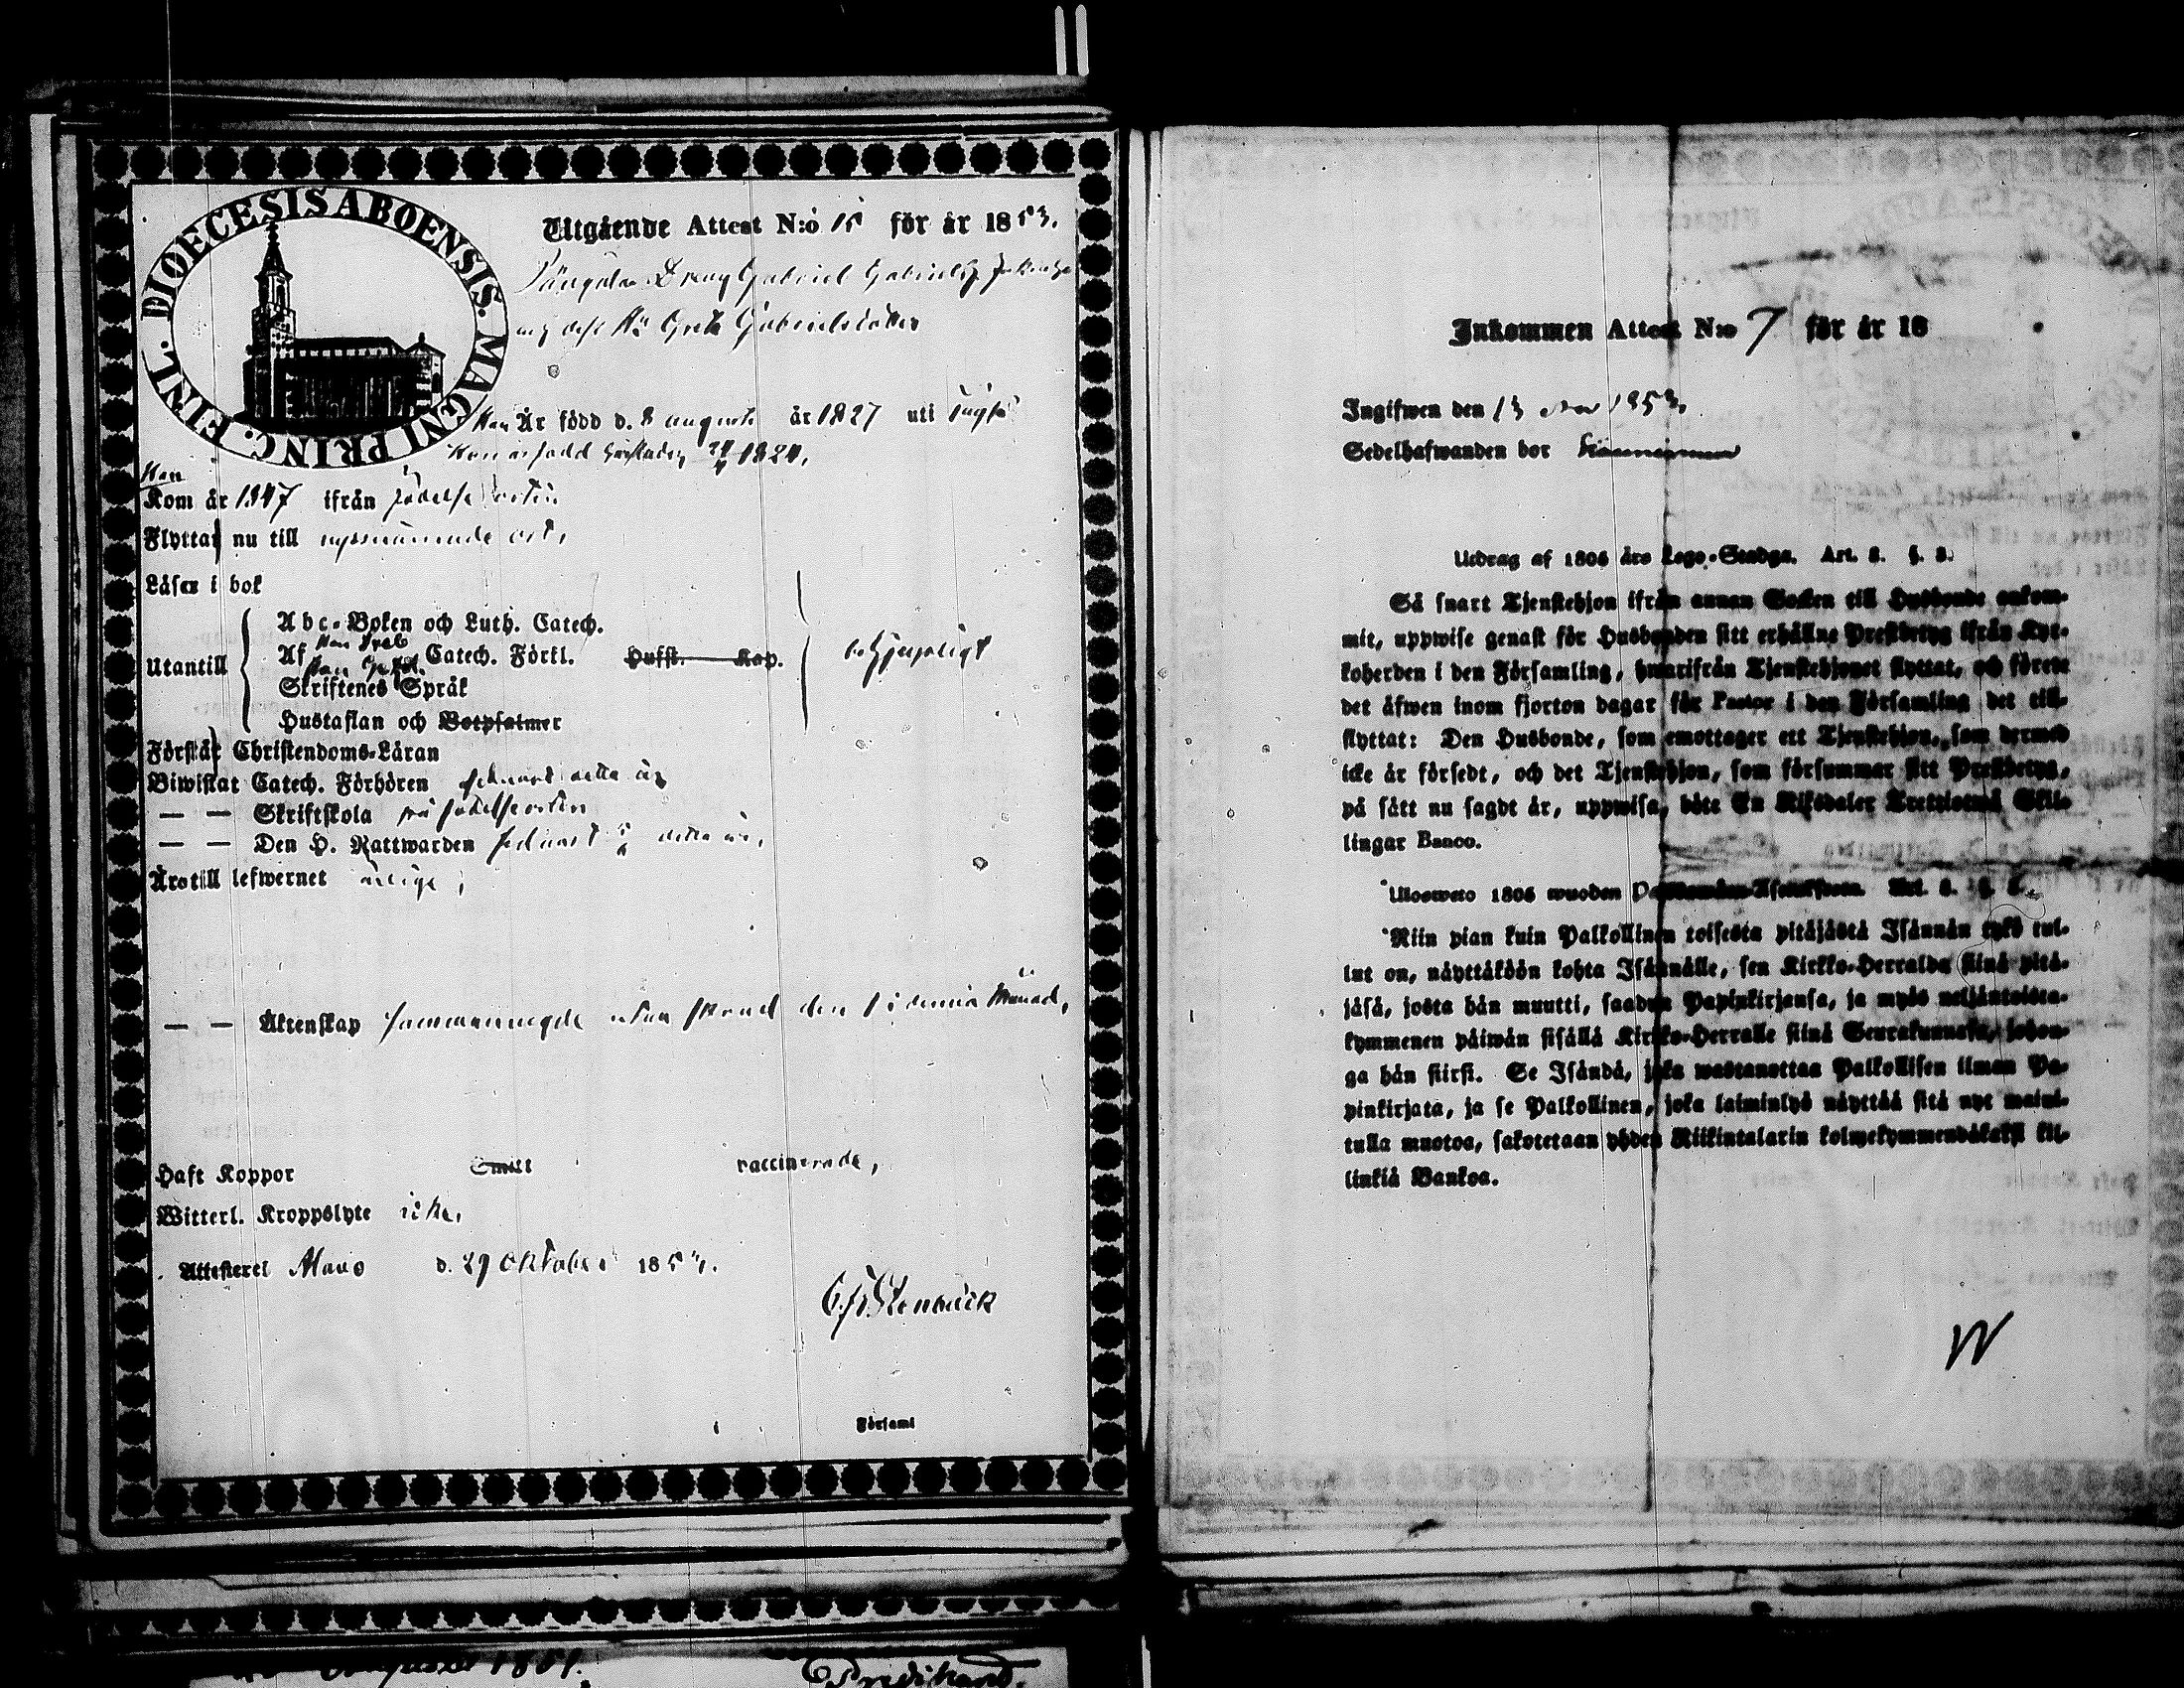 DIOECESIS ABOENSIS. MAGNI PRINC. FINL.
Utgående Attest N:o 15 för år 1853.
Dräng Gabriel Gabrielss.
Greta Gabrielsdotter
Han Är född d. 8 augusti år 1827 uti
Hon är född 1824.
Han
Kom år 1847 ifrån födelse orten.
Flyttar nu till nyssnämnde ort,
Läser i bok
Abc-Boken och Luth. Catech.
Utantill
Af Catech. Förkl. Hufst. Kap.
Skriftenes Språk
Hustaflan och Botpsalmer
Förstår Christendoms-Läran
Biwistat Catech. Förhören sednast detta år
— — Skriftskola på födelseorten
— — Den H. Nattwarden sednast detta år,
Äro till lefwernet ärlige;
— — Äktenskap sammanvigde den i denna Månad,
Haft Koppor Smitt vaccinerade,
Witterl. Kroppslyte icke,
Attesterel Alavo d. 29 Oktober 1853.
Stenbäck
Församl
1851.
Inkommen Attest N:o 7 för år 18
Ingifwen den 13 1853.
Sedelhafwanden bor
Utdrag af 1805 års Lego-Stadga. Art. 8. §. 8.
Så snart Tjenstehjon ifrån annan Socken till Husbonde ankom-
mit, uppwise genast för Husbonden sitt erhållne Prestbetyg ifrån Kyr-
koherden i den Församling, hwarifrån Tjenstehjonet flyttat, och förete
det äfwen inom fjorton dagar för Pastor i den Församling det till-
flyttat: Den Husbonde, som emottager ett Tjenstehjon, som dermed
icke är försedt, och det Tjenstehjon, som försummar sitt Prestbetyg,
på sätt nu sagdt är, uppwisa, böte En Riksdaler Tretiotwå Skil-
lingar Banco.
Ulosweto 1805 wuoden Palkowäen-Asetuksesta. Art. 8. §. 8.
Niin pian kuin Palkollinen toisesta pitäjästä Isännän tykö tul-
lut on, näyttäköön kohta Isännälle, sen Kirkko-Herralda siinä pitä-
jäsä, josta hän muutti, saadun Papinkirjansa, ja myös neljäntoista-
kymmenen päiwän sisällä Kirkko-Herralle siinä Seurakunnasa, johon-
ga hän siirsi. Se Isändä, joka wastanottaa Palkollisen ilman Pa-
pinkirjata, ja se Palkollinen, joka laiminlyö näyttää sitä nyt maini-
tulla muotoa, sakotetaan yhden Riikintalarin kolmekymmendäkaksi kil-
linkiä Bankoa.
W